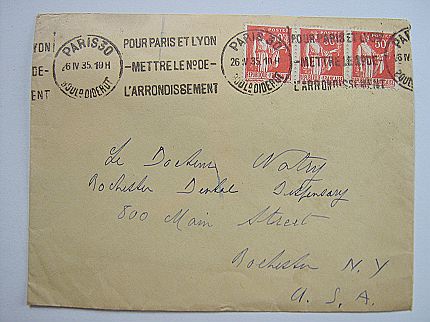 PARIS 30
26 IV 35. 19H
BOUL. DIDEROT
POUR PARIS ET LYON
-METTRE LE NO DE-
L'ARRONDISSEMENT
PARIS 30
26 IV 35. 19H
BOUL. DIDEROT
POUR PARIS ET
-METTRE LE NO DE-
L'ARRONDISSEMENT
POSTES
50c
50c
50c
Le Docteur
Rochester Dental Dispensary
800 Main Street
Rochester N.Y
U.S.A.